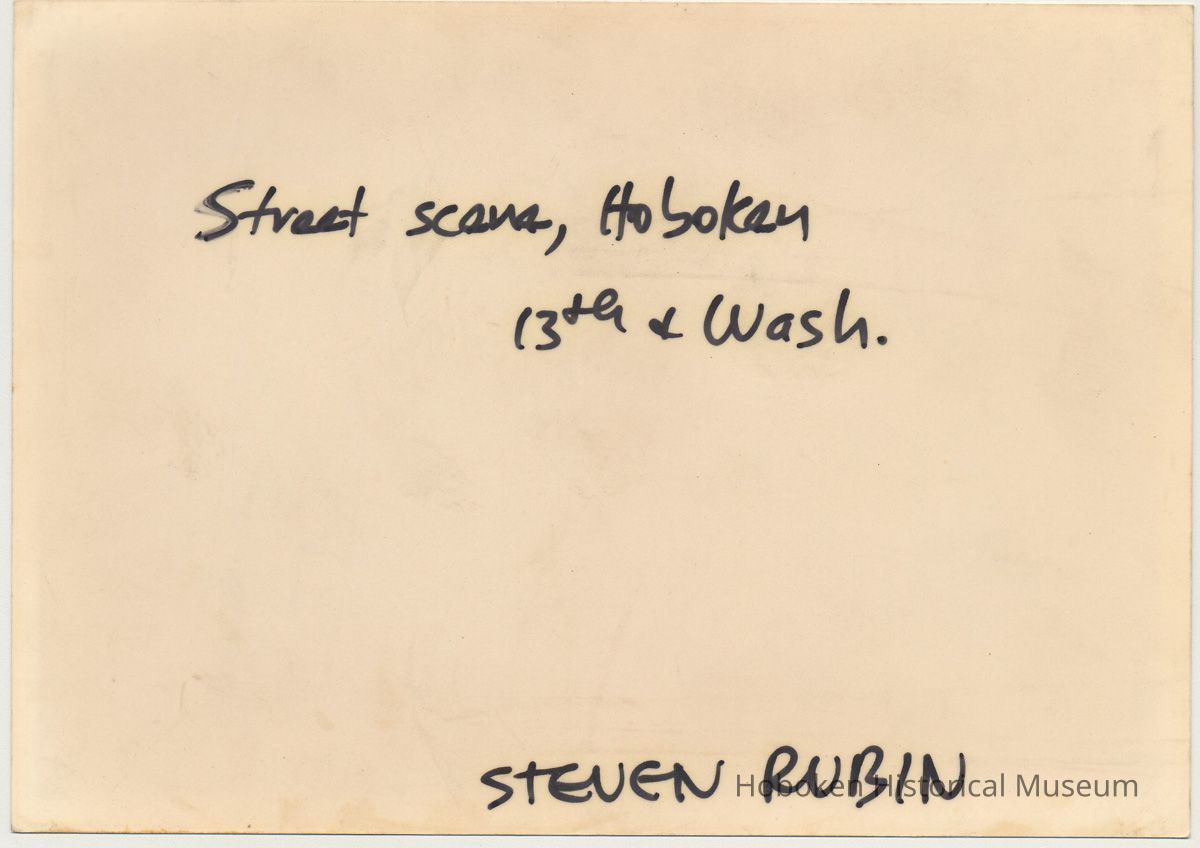 Street scene, Hoboken
13th & Wash.
STEVEN RUBIN
Hoboken Historical Museum